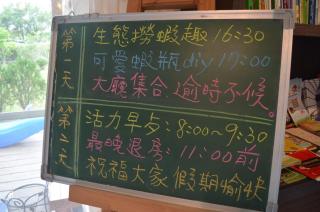 第一天
生態撈蝦趣 16:30
可愛蝦瓶diy 17:00
大廳集合,逾時不候。
第二天
活力早歺:8:00~9:30
最晚退房:11:00前
祝福大家 假期愉快